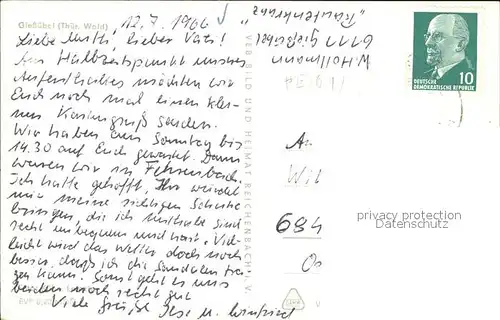 Gießübel (Thür. Wald)
12.7.1966
Liebe Mutti, lieber Vati!
Am Halbzeitpunkt unseres
Aufenthaltes möchten wir
Euch noch mal einen klei-
nen Kartengruß senden.
Wir haben am Sonntag bis
14.30 auf Euch gewartet. Dann
waren wir in Fehrenbach.
Ich hatte gehofft, Ihr würdet
mir meine richtigen Schuhe
bringen, die ich mithabe sind
recht unbequem und hart. Viel-
leicht wird das Wetter doch noch
besser, daß ich die Sandalen tra-
gen kann. Sonst geht es uns
beiden noch recht gut
Viele Grüße Ilse u. Winfried
W. Hollmann
6111 Gießübel
"Rautenkranz"
VEB BILD UND HEIMAT REICHENBACH I. V.
10
DEUTSCHE
DEMOKRATISCHE REPUBLIK
An
Wil
684
privacy protection
Datenschutz
V